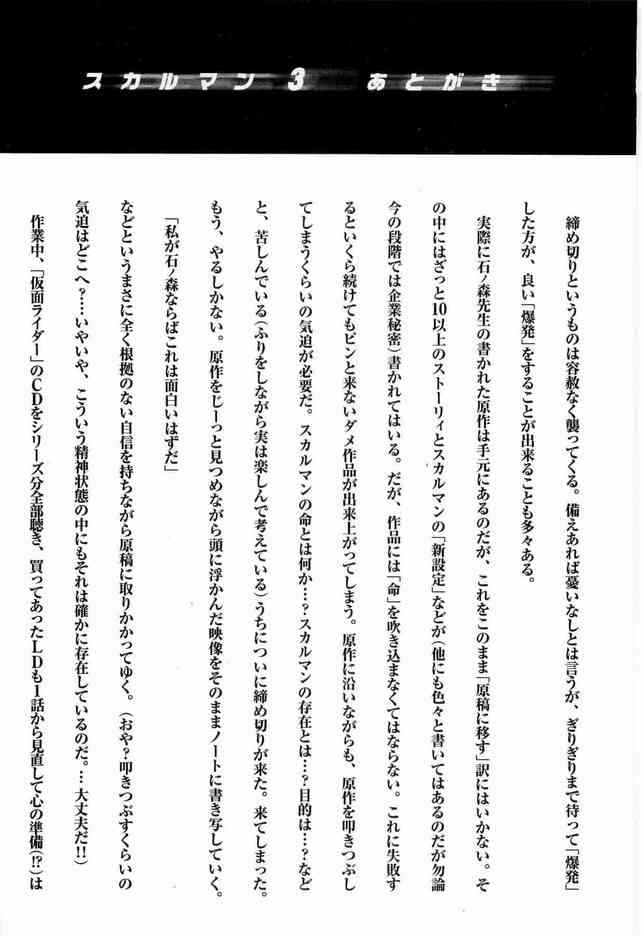 スカルマン 3 あとがき
締め切りというものは容赦なく襲ってくる。備えあれば憂いなしとは言うが、ぎりぎりまで待って「爆発」
した方が、良い「爆発」をすることが出来ることも多々ある。
実際に石ノ森先生の書かれた原作は手元にあるのだが、これをこのまま「原稿に移す」訳にはいかない。そ
の中にはざっと10以上のストーリィとスカルマンの「新設定」などが（他にも色々と書いてはあるのだが勿論
今の段階では企業秘密）書かれてはいる。だが、作品には「命」を吹き込まなくてはならない。これに失敗す
るといくら続けてもピンと来ないダメ作品が出来上がってしまう。原作に沿いながらも、原作を叩きつぶし
てしまうくらいの気迫が必要だ。スカルマンの命とは何か…？スカルマンの存在とは…？目的は…？など
と、苦しんでいる（ふりをしながら実は楽しんで考えている）うちについに締め切りが来た。来てしまった。
もう、やるしかない。原作をじーっと見つめながら頭に浮かんだ映像をそのままノートに書き写していく。
「私が石ノ森ならばこれは面白いはずだ」
などというまさに全く根拠のない自信を持ちながら原稿に取りかかってゆく。（おや？叩きつぶすくらいの
気迫はどこへ？…いやいや、こういう精神状態の中にもそれは確かに存在しているのだ。…大丈夫だ!!）
作業中、「仮面ライダー」のCDをシリーズ分全部聴き、買ってあったLDも1話から見直して心の準備(!?)は